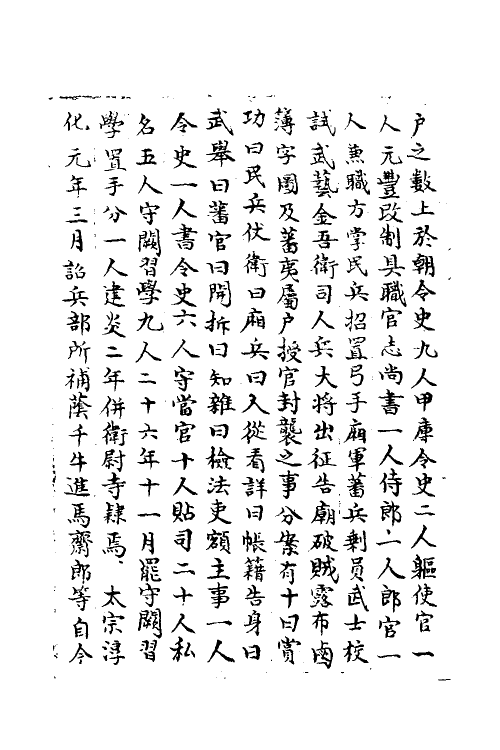 户之數上於朝令史九人甲庫令史二人驅使官一
人元豐改制具職官志尚書一人侍郎一人郎官一
人兼職方掌民兵招置弓手廂軍蕃兵剩員武士校
試武藝金吾衛司人兵大将出征告廟破賊露布鹵
薄字圖及蕃夷屬户授官封襲之事分案有十曰賞
功曰民兵伏衛曰廂兵曰入從看詳曰帳籍告身曰
武舉曰蕃官曰開拆曰知雜曰檢法吏額主事一人
令史一人書令史六人守當官十人貼司二十人私
名五人守闕習學九人二十六年十一月罷守闕習
學置手分一人建炎二年併衛尉寺隸焉太宗淳
化元年三月詔兵部所補蔭千牛進馬齋郎等自今